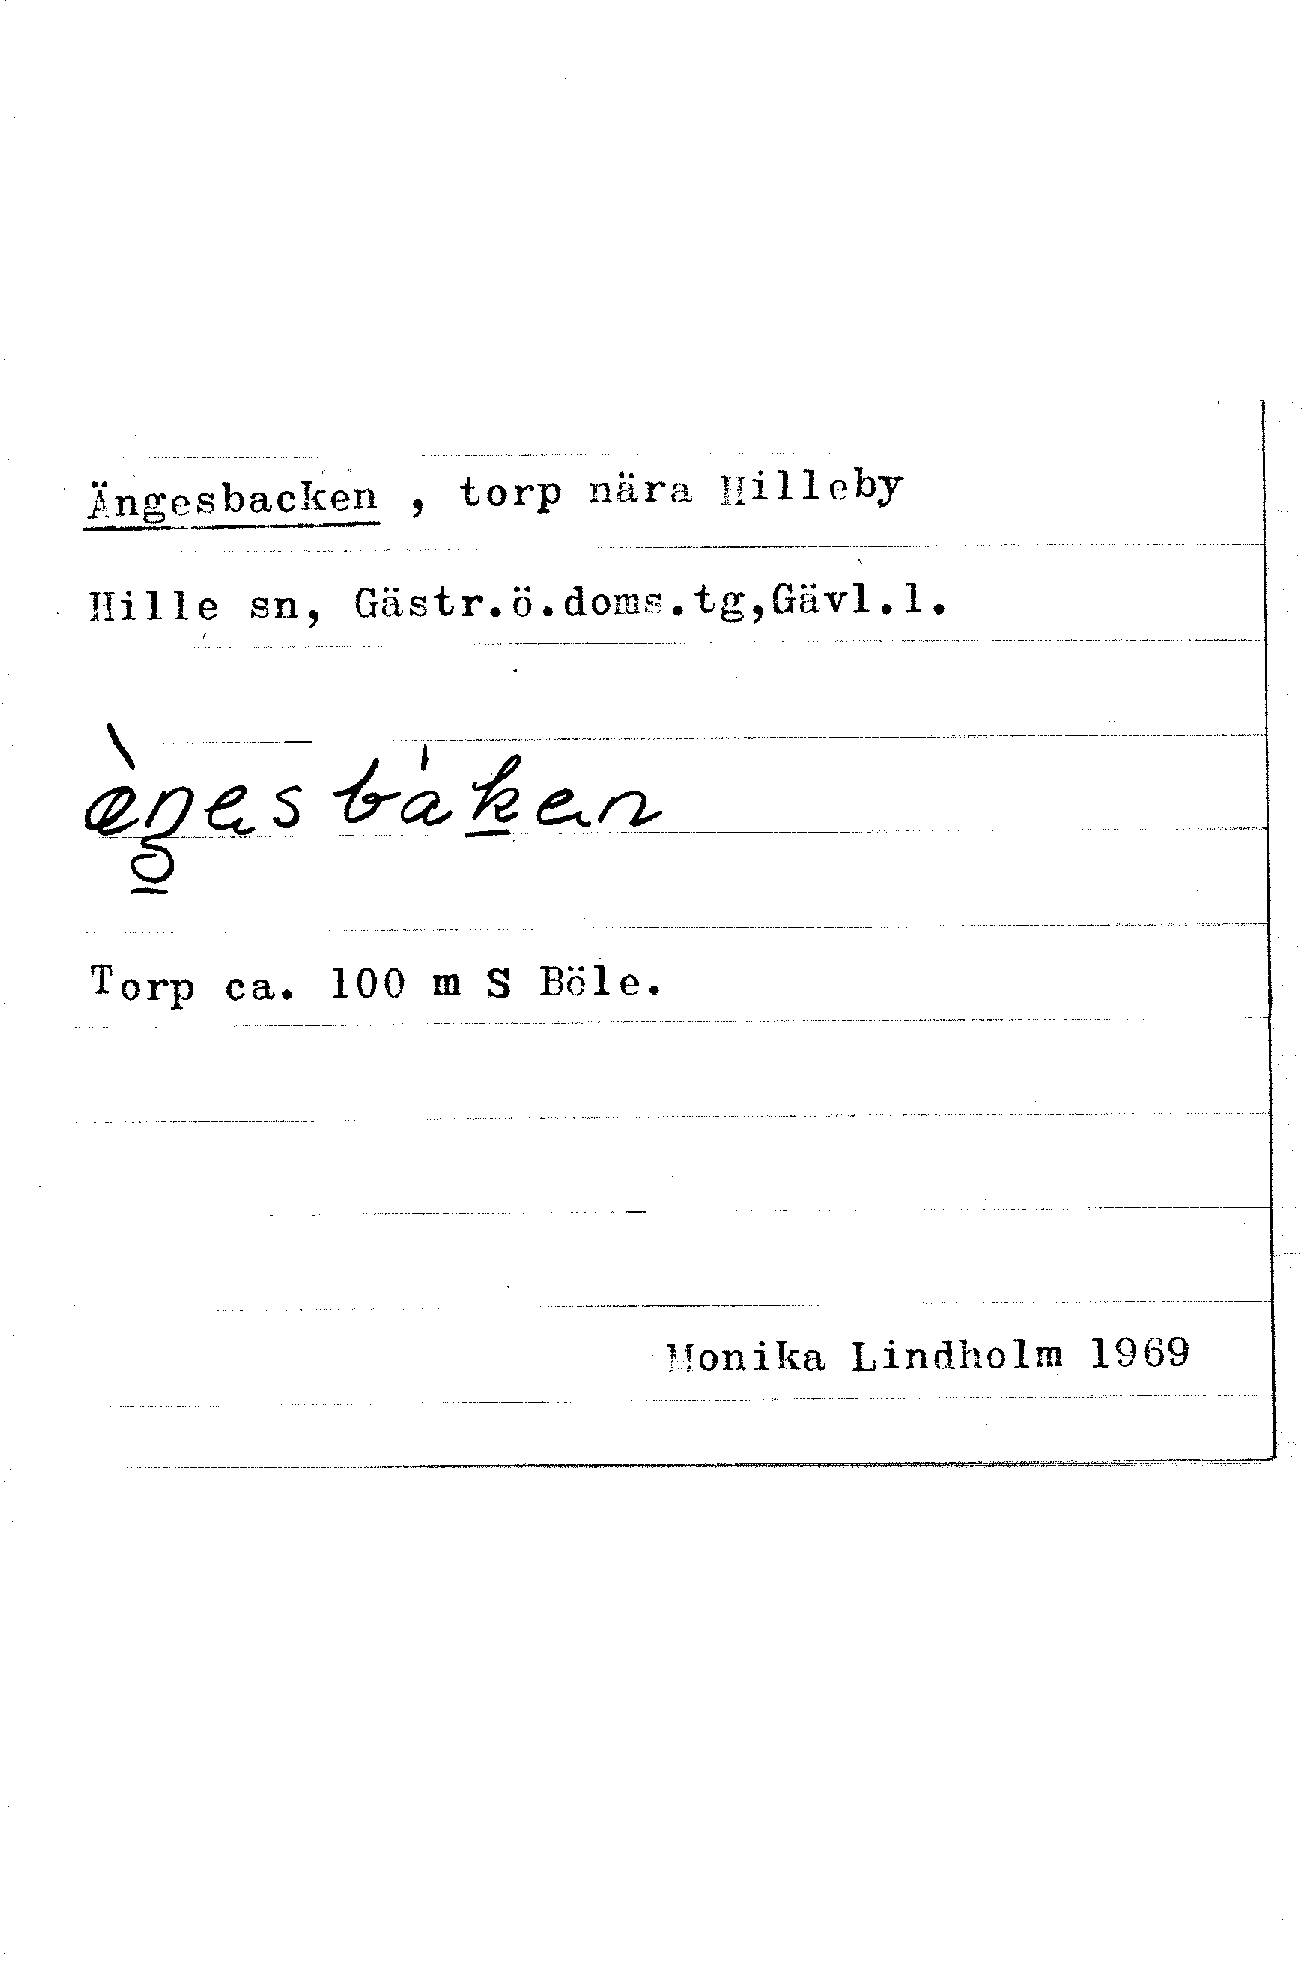 Ängesbacken , torp nära Hilleby
Hille sn, Gästr.ö.doms.tg,Gävl.l.
æ̀ŋesbàken
Torp ca. 100 m S Böle.
Monika Lindholm 1969